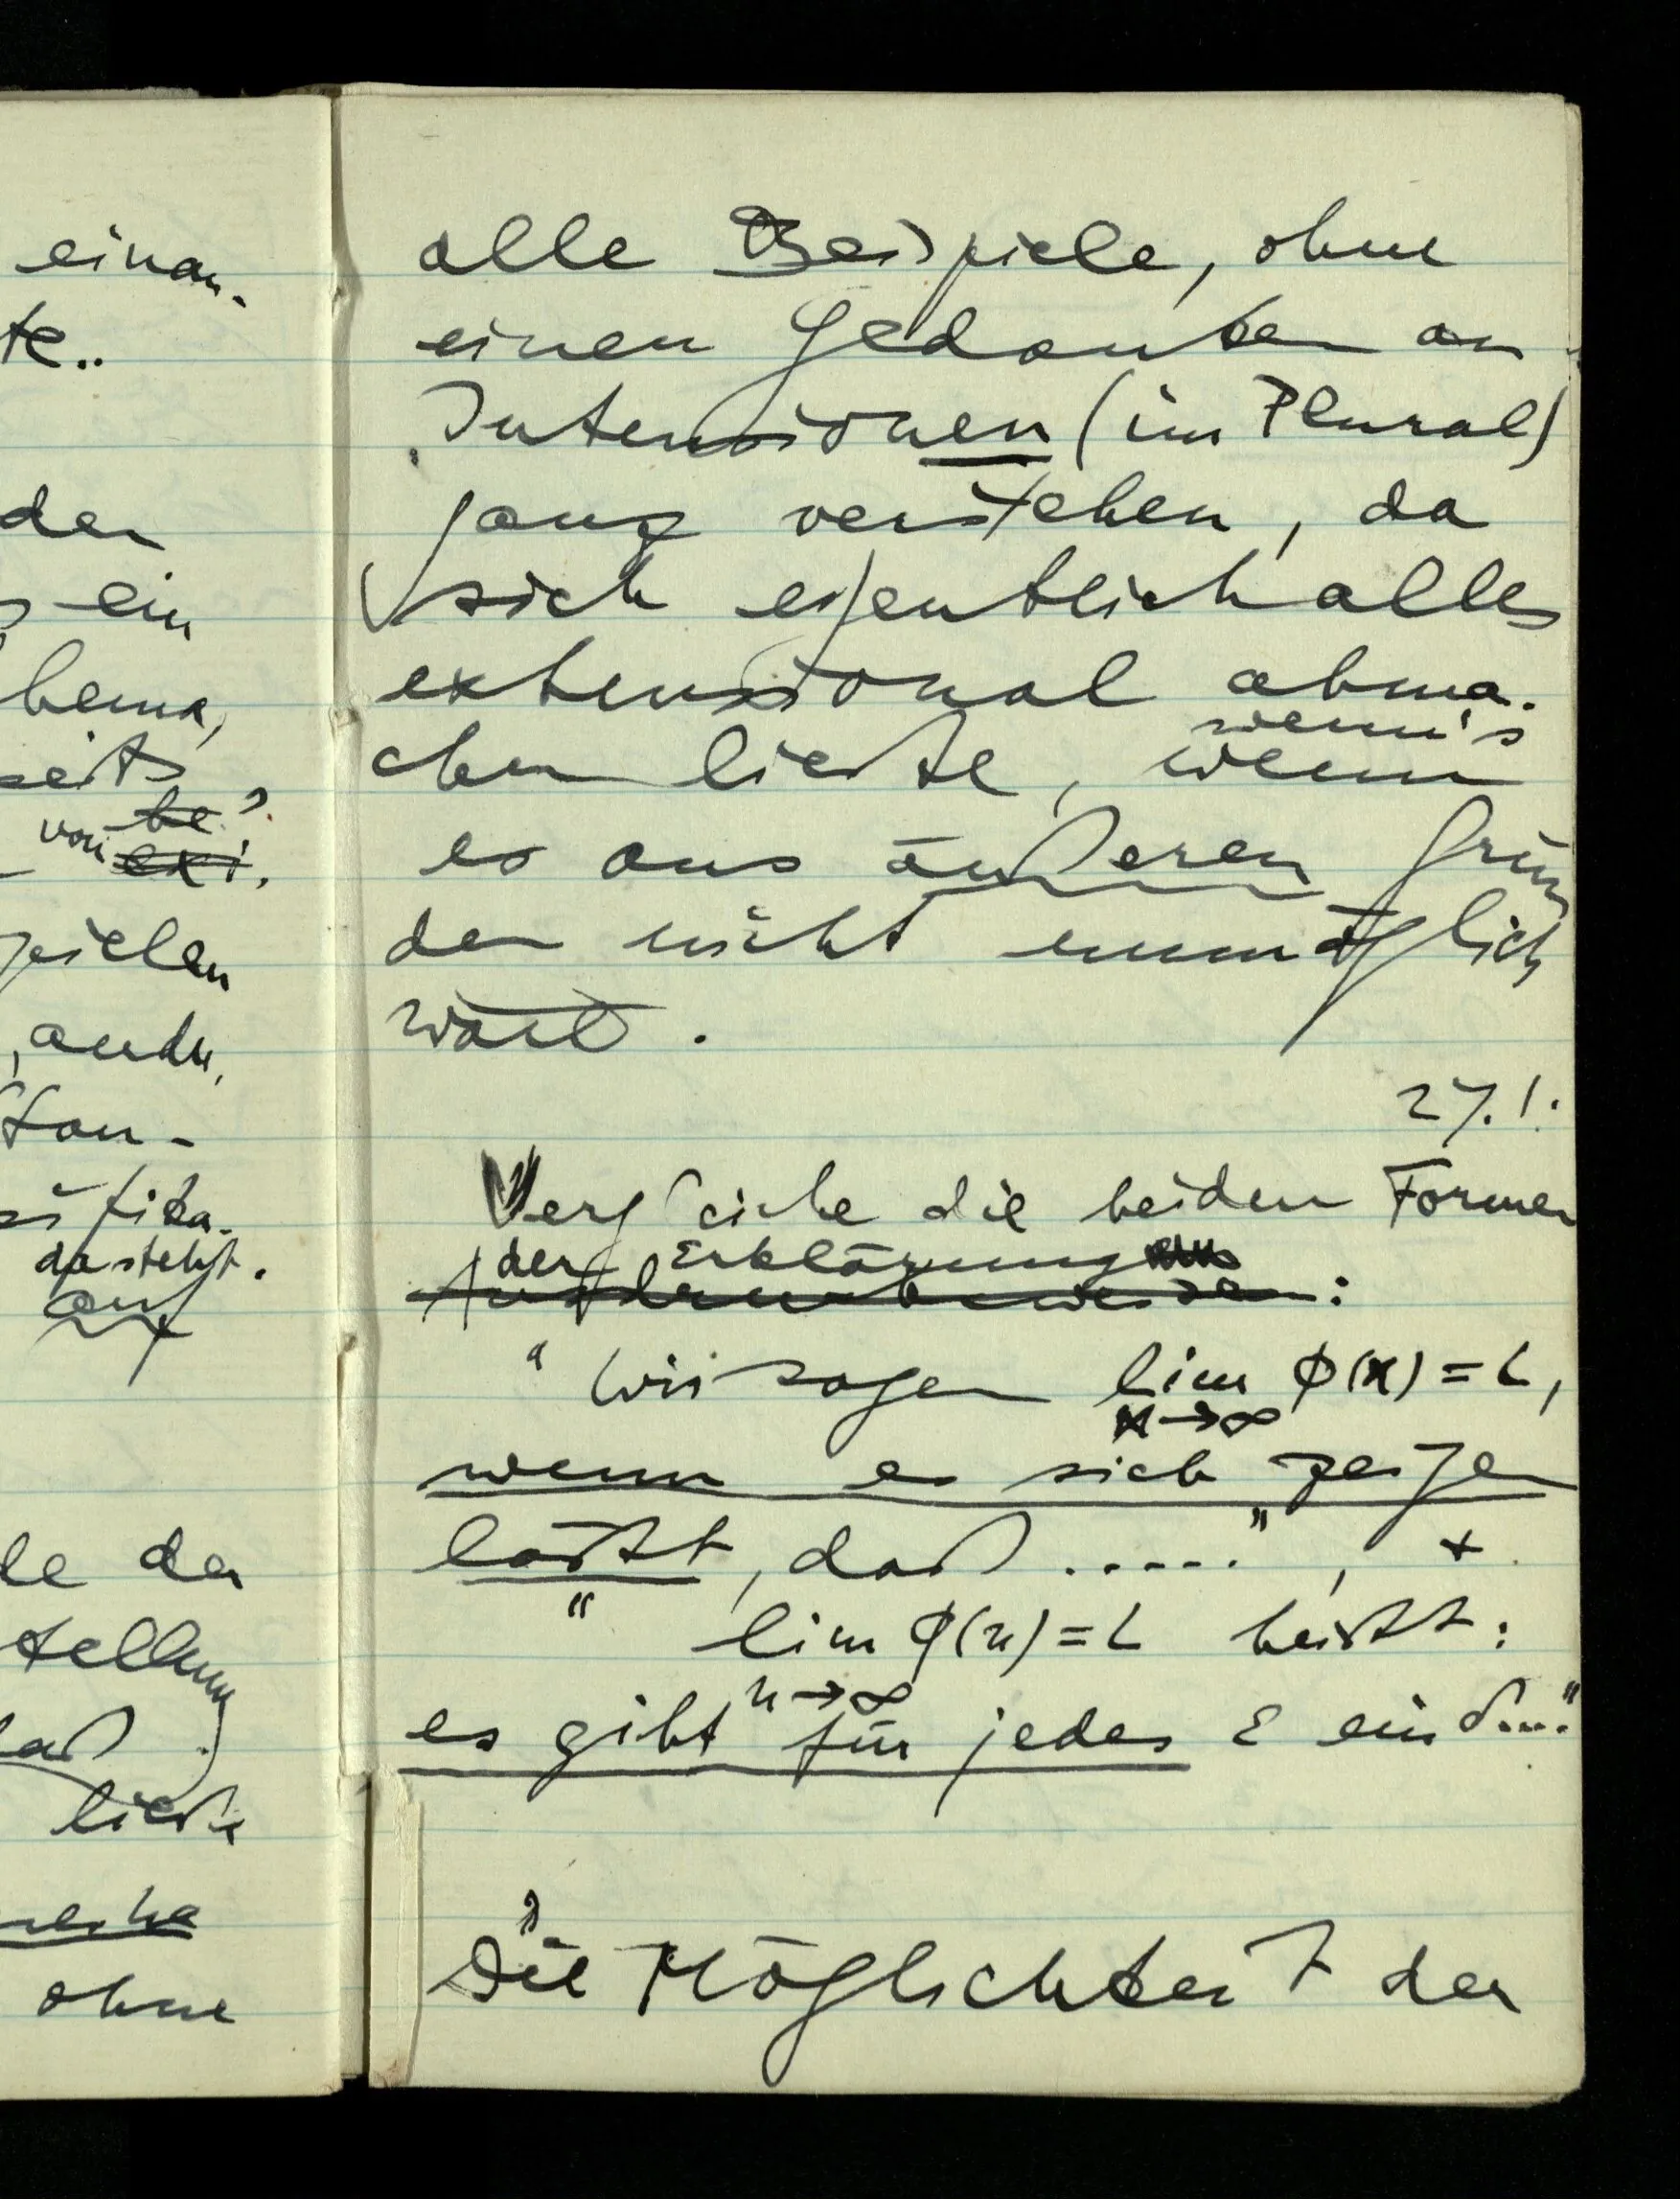 einan-
te..
den
ein
hema,
seits
be
von exi.
pielen
, andu,
tan-
fika-
dasteht.
auf
le der
tellung
daß
ließe
ohne
alle Beispiele, ohne
einen Gedanken an
Intensionen (im Plural)
ganz verstehen, da
sich eigentlich alles
extensional abma-
wenn's
chen ließe, wenn
es aus äußeren Grün
den nicht unmöglich
wäre.
27.1.
Vergleiche die beiden Formen
der Erklärung
Ausdrucksweisen:
"Wir sagen lim φ(x) = L,
x→∞
wenn es sich zeigen
läßt, daß ....." , +
" lim φ(n) = L heißt:
n→∞
es gibt für jedes ε ein δ..."
"Die Möglichkeit der